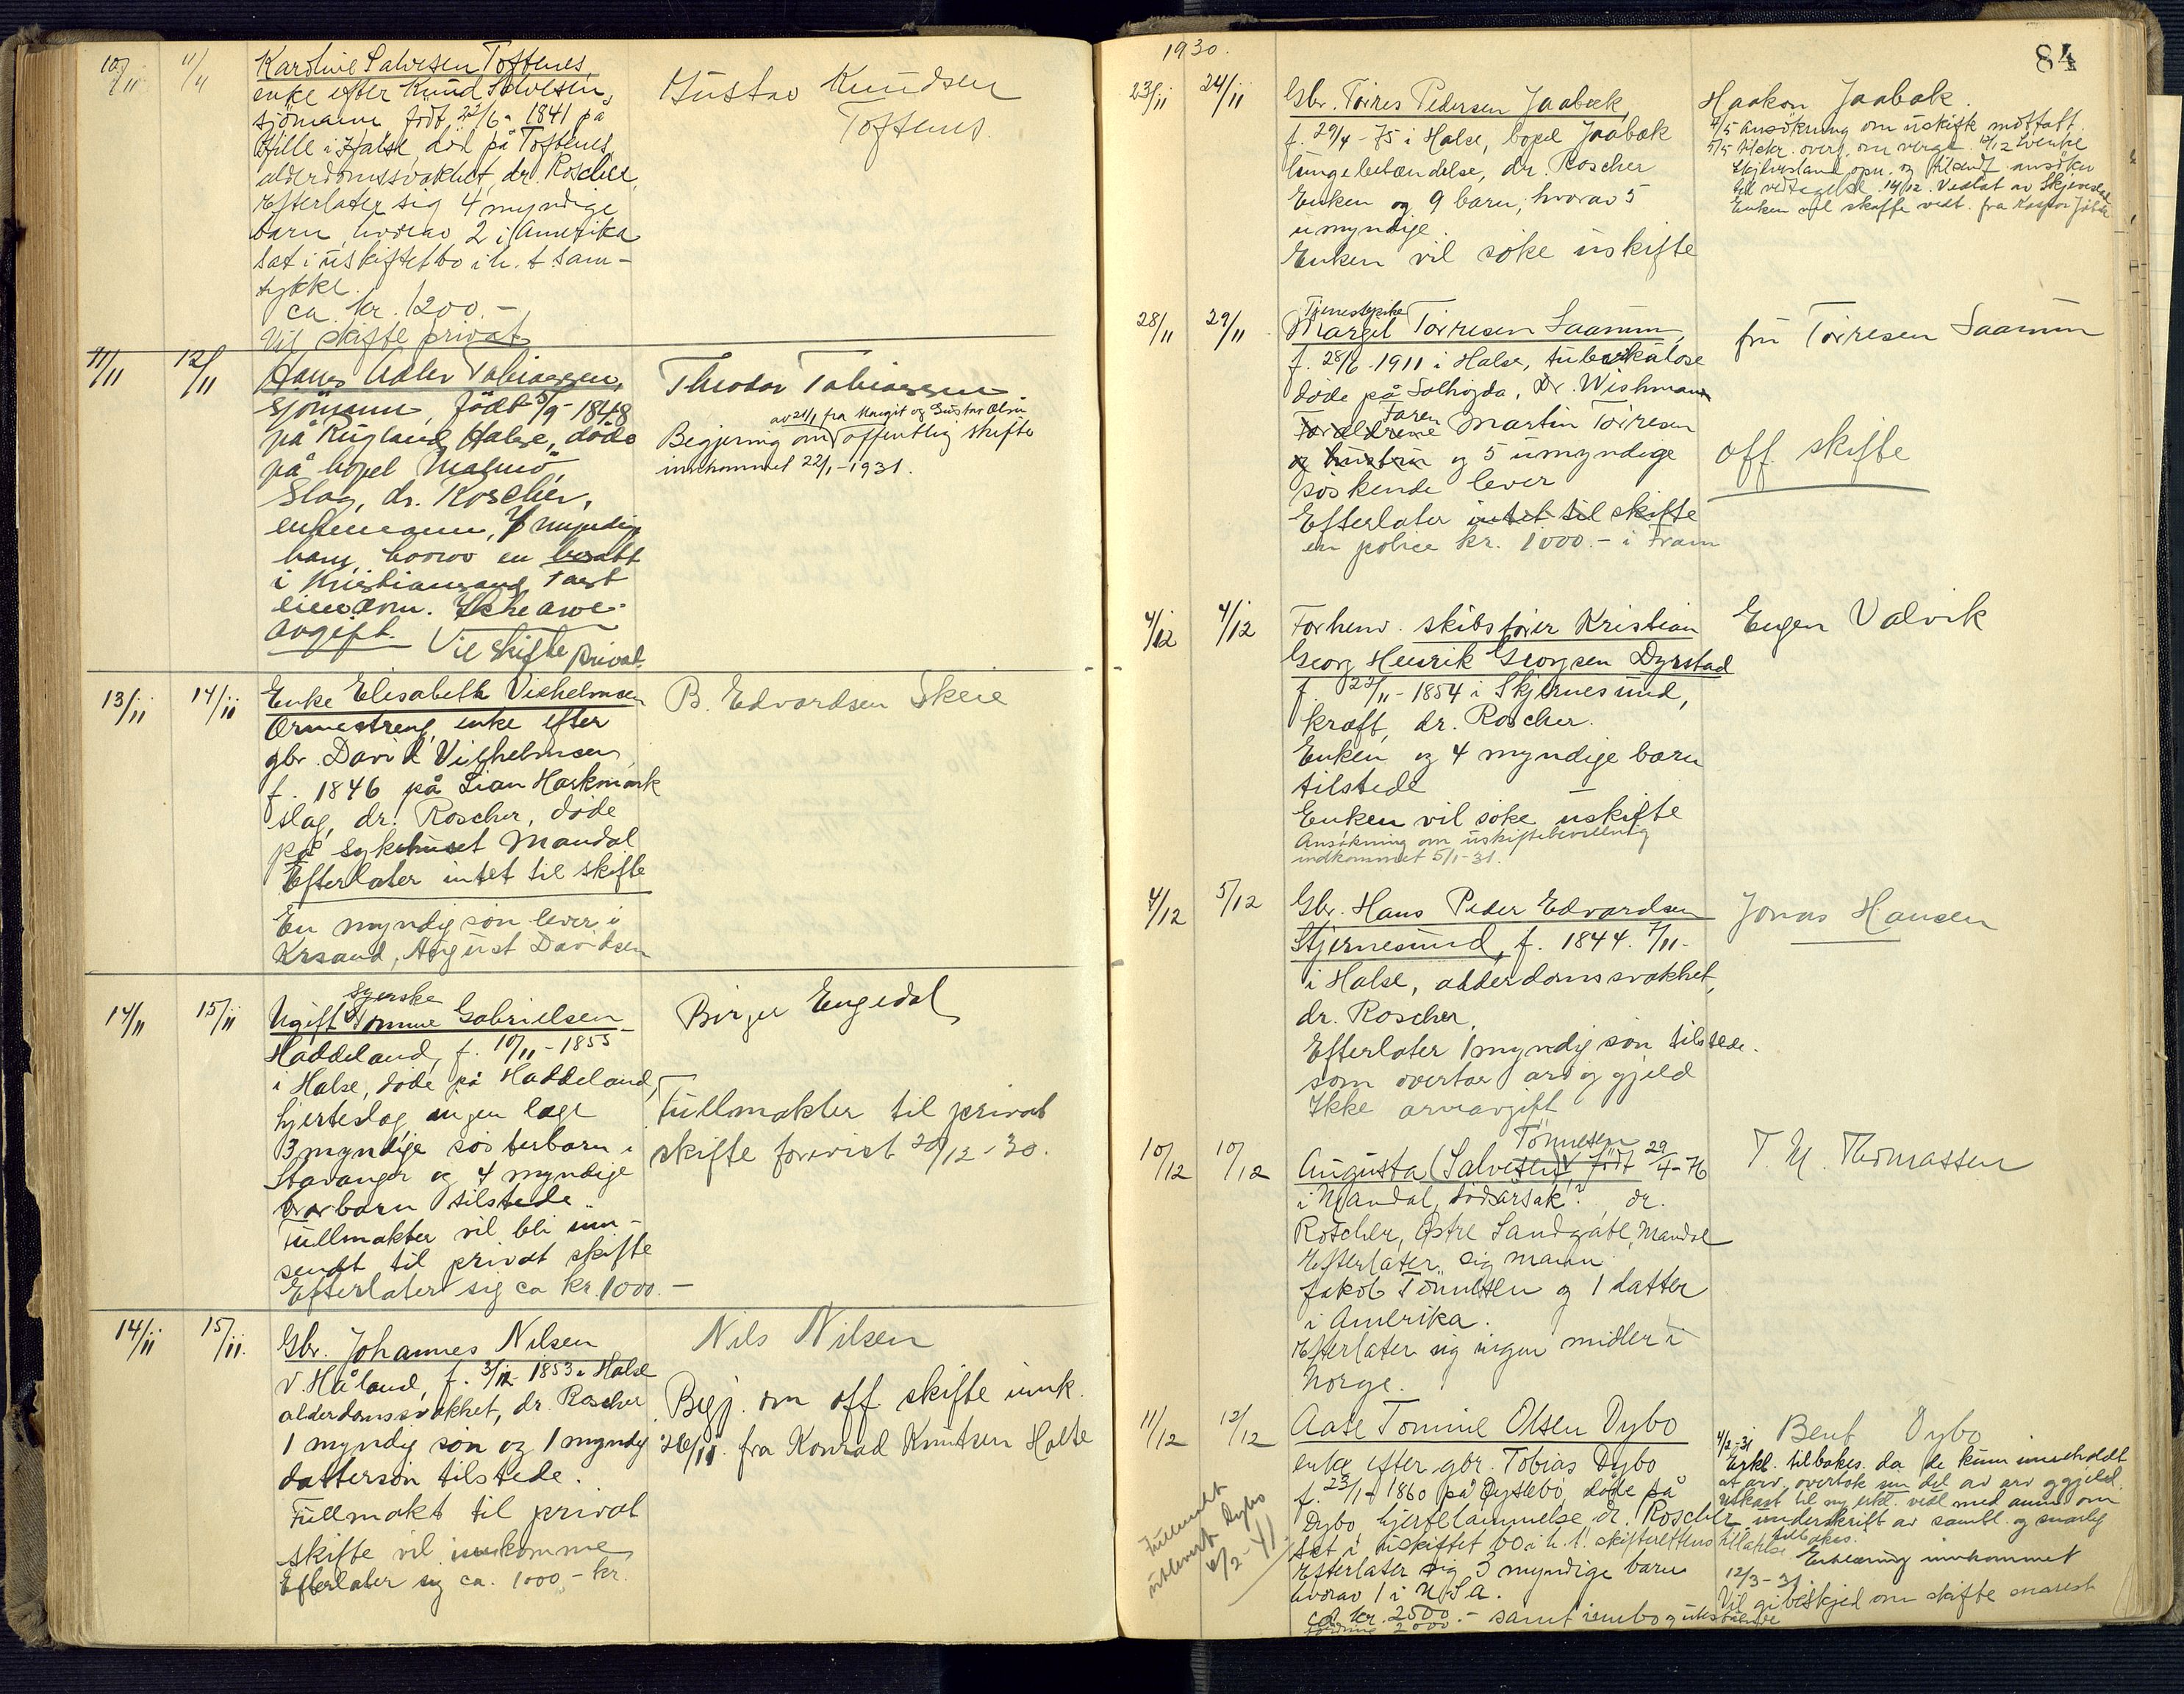 10/11 11/11 Karoline Salvesen Toftenes,
enke efter Knud Salvesen,
sjömann født 22/6- 1841 på
Hille i Halse, död på Toftenes,
alderdomssvakhet, dr. Roscher,
Efterlater sig 4 myndige
barn, hvorav 2 i Amerika
Sat i uskiftet bo i h. t. sam-
tykke.
ca. kr. 1200.-
Vil skifte privat
Gustav Knudsen
Toftenes.
11/11 12/11 Hans Adler Tobiassen,
Sjömann, født 5/9- 1848
på Rugland, Halse, döde
på bopel Malmö,
Slag, dr. Roscher,
enkemann, myndig
barn, hvorav en bosatt
i Kristiansand
Ikke arve-
avgift. Vil skifte privat.
Theodor Tobiassen
av 21/1 fra Margit og Gustav Olsen
Begjering om offentlig skifte
innkommet 22/1-1931.
13/11 14/11 Enke Elisabeth Vilhelmsen
Ormestreng, enke efter
gbr. David Vilhelmsen,
f. 1846 på Lian Harkmark
slag, dr. Roscher, döde
på sykehuset Mandal
Efterlater intet til skifte
En myndig sön lever i
Krsand, August Davidsen
B. Edvardsen Skeie
14/11 15/11 syerske
Ugift Tomine Gabrielsen
Haddeland, f. 10/11-1855
i Halse, döde på Haddeland,
hjerteslag ingen læge
3 myndige sösterbarn i
Stavanger og 4 myndige
brorbarn tilstede
Fullmakter vil bli inn-
sendt til privat skifte
Efterlater sig ca kr. 1000.-
Birger Engedal
Fullmakter til privat
skifte forevist 20/12-30.
14/11 15/11. Gbr. Johannes Nilsen
V. Håland, f. 3/12 1853 i Halse
alderdomssvakhet, dr. Roscher
1 myndig sön og 1 myndig
dattersön tilstede.
Fullmakt til privat
skifte vil innkomme
Efterlater sig ca. 1000,- kr.
Nils Nilsen
Begj. om off. skifte innk.
26/11. fra Konrad Knutsen Holte
1930.
84
23/11 24/11 Gbr. Torres Pedersen Jaabæk,
f. 29/4-75 i Halse, bopel Jaabæk
lungebetændelse, dr. Roscher
Enken og 9 barn, hvorav 5
umyndige.
Enken vil söke uskifte
Haakon Jaabæk.
4/5 Ansökning om uskifte mottatt.
Enken vil skaffe vedt. fra
28/11 29/11 Tjenestepike
Margit Torresen Saanum,
f. 28/6-1911 i Halse, tuberkulose
döde på Solhögda, Dr. Wishmann
Foreldrene Faren Martin Torresen
og hustru og 5 umyndige
söskende lever
Efterlater intet til skifte
en police kr. 1000.- i Fram
fru Torresen Saanum
off. skifte
4/12 4/12 Forhenv. skibsförer Kristian
Georg Henrik Georgsen Dyrstad
f. 22/11-1854 i Skjernesund,
kræft, dr. Roscher.
Enken og 4 myndige barn
tilstede
Enken vil söke uskifte
Ansökning om uskiftebevilling
indkommet 5/1-31.
Eugen Valvik
4/12 5/12 Gbr. Hans Peder Edvardsen
Skjernesund, f. 1844. 7/11-
i Halse, alderdomssvakhet,
dr. Roscher,
Efterlater 1 myndig sön tilstede.
som overtar arv og gjeld
Ikke arveavgift
Jonas Hansen
10/12 10/12 Tönnesen
Augusta (Salvesen) født 29/4-76
i Mandal, dödsårsak? dr.
Roscher, Östre Landgate, Mandal
Efterlater sig mann
Jakob Tönnesen og 1 datter
i Amerika.
Efterlater sig ingen midler i
Norge.
T. M. Thomassen
11/12 12/12 Aase Tomine Olsen Dybo
enke efter gbr. Tobias Dybo
f. 23/1-1860 på Öyslebö, döde på
Dybo, hjertelammelse dr. Roscher
Sat i uskiftet bo i h. t. skifterettens tillatelse
Efterlater sig 3 myndige barn
hvorav 1 i U.S.A.
ca. kr. 2500.- samt innbo og
2000
Fullmakt
utlevert Dybo
6/2-41
Bent Dybo
4/2-31
Erkl. tilbakes. da de kun inneholdt
at arv. overtok sin del av arv og gjeld.
Utkast til ny erkl. vedl. med anm. om
underskrift av samtl. og snarlig
tilbakes.
Erklæring innkommet
12/3-31.
Vil gi beskjed om skifte snarest